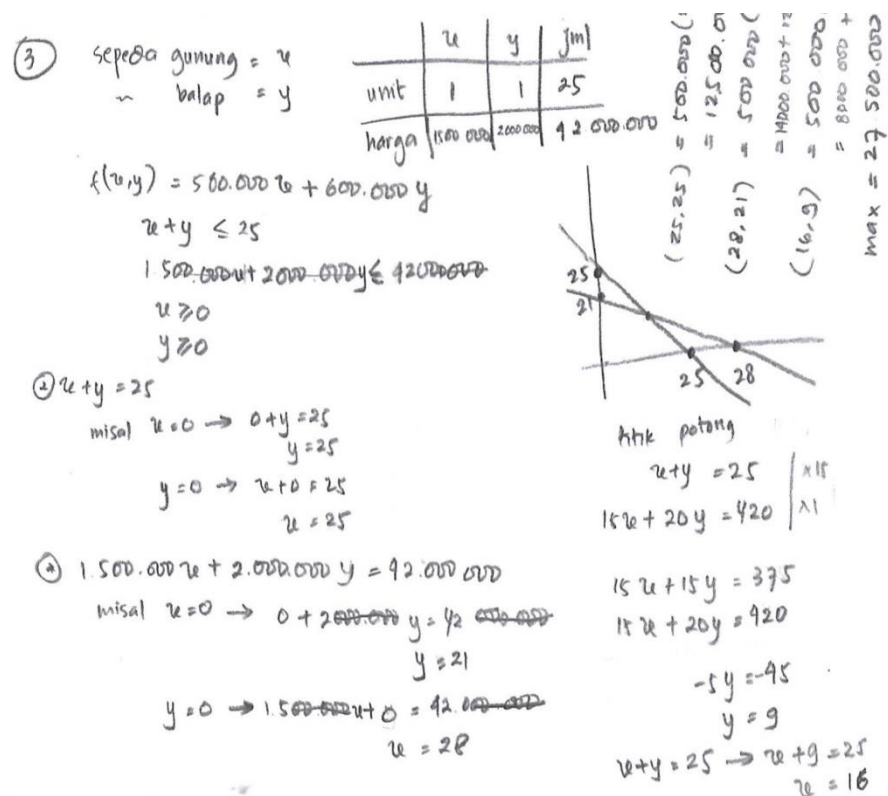 3
sepeda gunung = x
" balap = y
x | y | jml
unit | 1 | 1 | 25
harga | 1500 000 | 2000 000 | 42.000.000
f(x,y) = 500.000 x + 600.000 y
x+y ≤ 25
1.500.000x + 2000.000y ≤ 42000000
x ≥ 0
y ≥ 0
x+y = 25
misal x=0 → 0+y = 25
y = 25
y=0 → x+0 = 25
x = 25
1.500.000 x + 2.000.000 y = 42.000 000
misal x=0 → 0 + 2000.000 y = 42 000.000
y = 21
y=0 → 1.500.000x + 0 = 42.000.000
x = 28
(25,25) = 500.000(
= 12500.0
(28,21) = 500 000(
= 14000.000 + 12
(16,9) = 500 000
= 8000 000 +
max = 27.500.000
25
21
25 28
titik potong
x+y = 25 | x15
15x + 20y = 420 | x1
15x + 15y = 375
15x + 20y = 420
-5y = -45
y = 9
x+y = 25 → x+9 = 25
x = 16